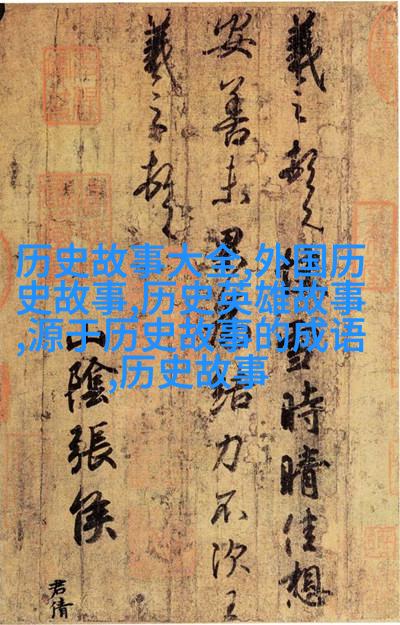 历史故事大全,外国历
史故事,历史英雄故事
,源于历史故事的成语
,历史故事
羲之頓首快雪時晴佳想
安善未果結力不次王
羲之頓首
山陰張侯
君倩